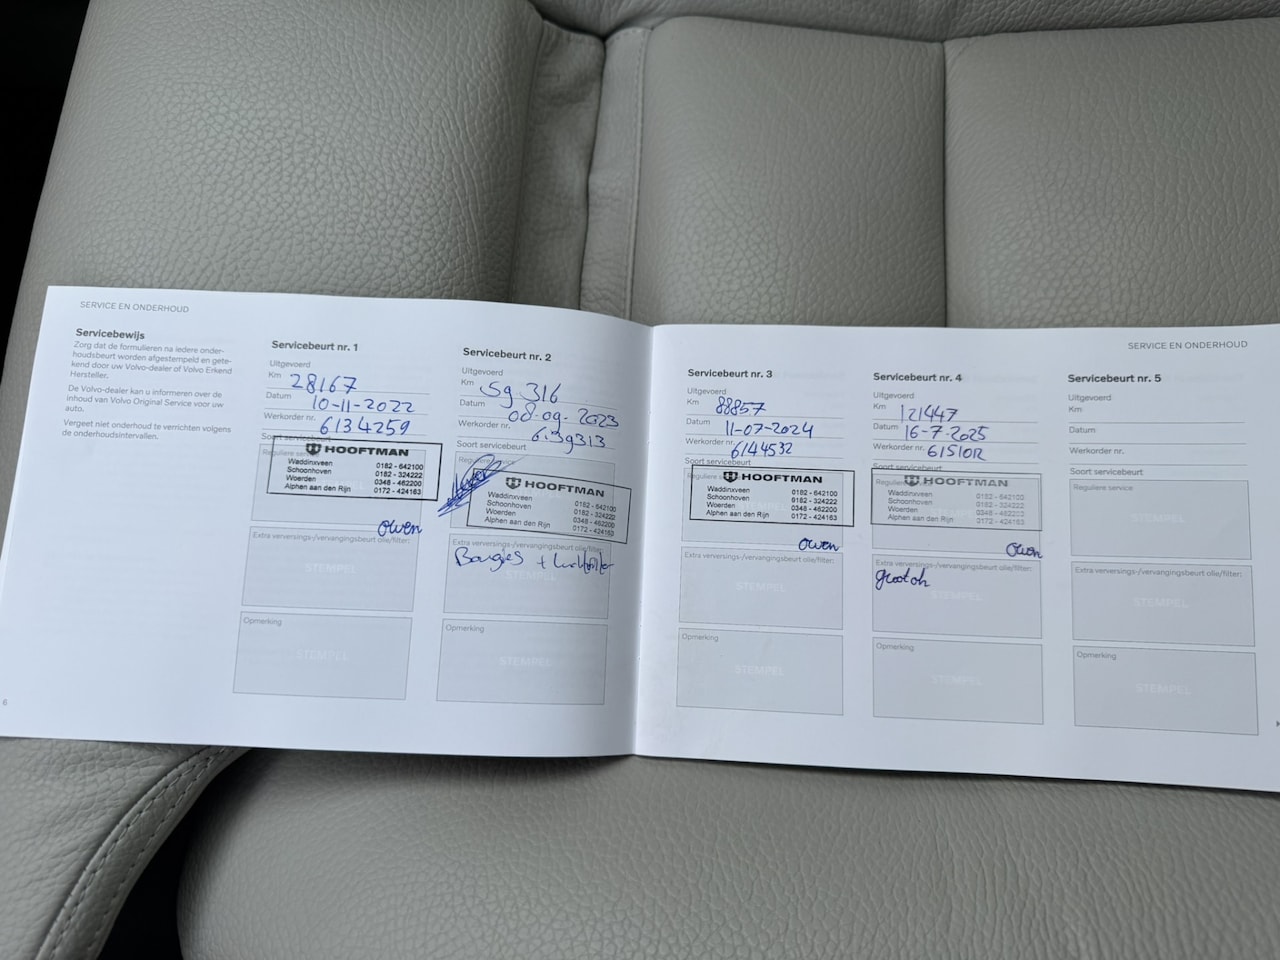 SERVICE EN ONDERHOUD
Servicebewijs
Zorg dat de formulieren na iedere onder-
houdsbeurt worden afgestempeld en gete-
kend door uw Volvo-dealer of Volvo Erkend
Hersteller.
De Volvo-dealer kan u informeren over de
inhoud van Volvo Original Service voor uw
auto.
Vergeet niet onderhoud te verrichten volgens
de onderhoudsintervallen.
6
Servicebeurt nr. 1
Uitgevoerd
Km 28167
Datum 10-11-2022
Werkorder nr. 6134259
Soort servicebeurt
Reguliere service
HOOFTMAN
Waddinxveen 0182 - 642100
Schoonhoven 0182 - 324222
Woerden 0348 - 462200
Alphen aan den Rijn 0172 - 424163
Owen
Extra verversings-/vervangingsbeurt olie/filter:
STEMPEL
Opmerking
STEMPEL
Servicebeurt nr. 2
Uitgevoerd
Km 59 316
Datum 08-09-2023
Werkorder nr. 6139313
Soort servicebeurt
Reguliere service
HOOFTMAN
Waddinxveen 0182 - 642100
Schoonhoven 0182 - 324222
Woerden 0348 - 462200
Alphen aan den Rijn 0172 - 424163
Extra verversings-/vervangingsbeurt olie/filter:
Bougies + luchtfilter
STEMPEL
Opmerking
STEMPEL
SERVICE EN ONDERHOUD
Servicebeurt nr. 3
Uitgevoerd
Km 88857
Datum 11-07-2024
Werkorder nr. 6144532
Soort servicebeurt
HOOFTMAN
Waddinxveen 0182 - 642100
Schoonhoven 0182 - 324222
Woerden 0348 - 462200
Alphen aan den Rijn 0172 - 424163
Owen
Extra verversings-/vervangingsbeurt olie/filter:
STEMPEL
Opmerking
STEMPEL
Servicebeurt nr. 4
Uitgevoerd
Km 121447
Datum 16-7-2025
Werkorder nr.
Soort servicebeurt
Reguliere
HOOFTMAN
Waddinxveen 0182 - 642100
Schoonhoven 0182 - 324222
Woerden 0348 - 462200
Alphen aan den Rijn 0172 - 424163
Owen
Extra verversings-/vervangingsbeurt olie/filter:
groot oh
STEMPEL
Opmerking
STEMPEL
Servicebeurt nr. 5
Uitgevoerd
Km
Datum
Werkorder nr.
Soort servicebeurt
Reguliere service
Extra verversings-/vervangingsbeurt olie/filter:
STEMPEL
Opmerking
STEMPEL